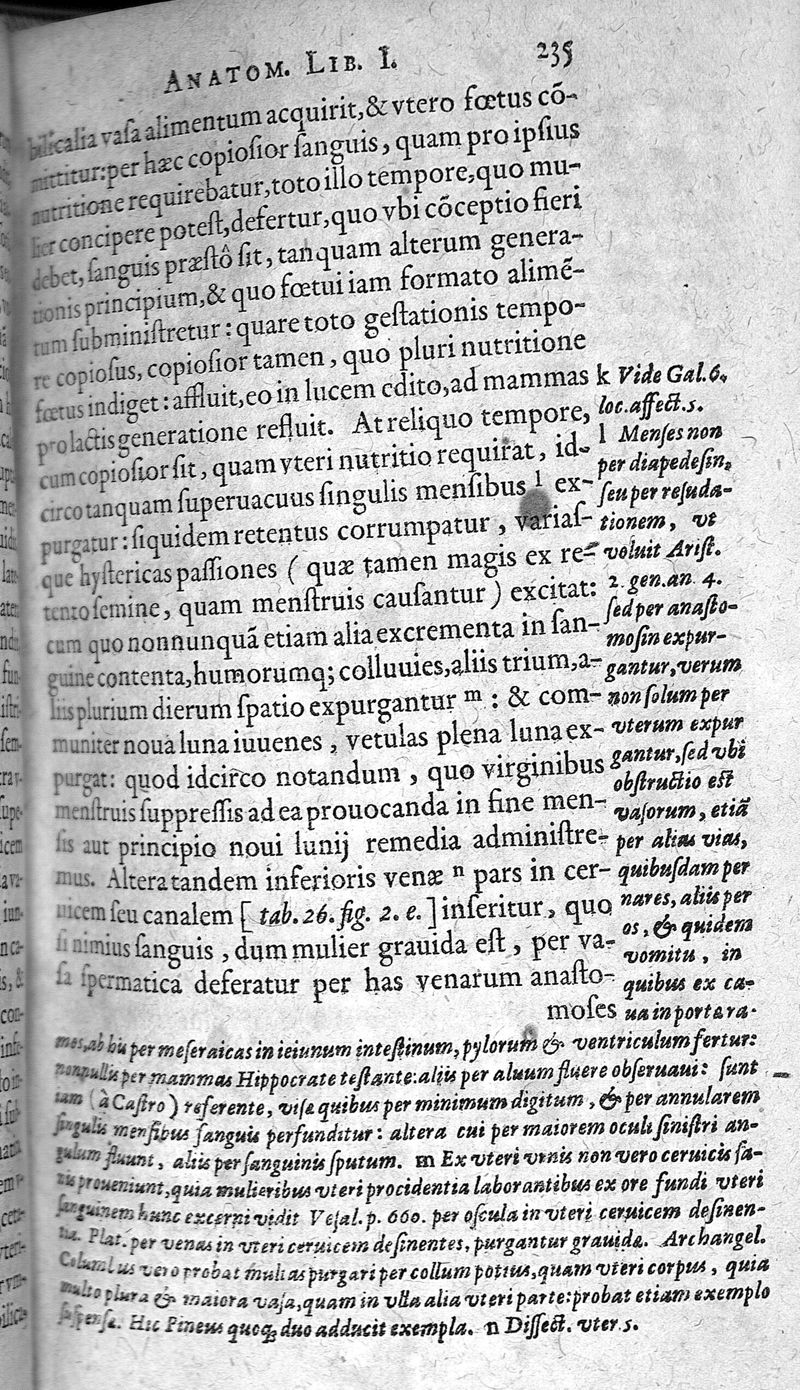 ANATOM. LIB. I. 235
bilicalia vaſa alimentum acquirit,& vtero fœtus cõ-
mittitur:per hæc copioſior ſanguis, quam pro ipſius
nutritione requirebatur,toto illo tempore,quo mu-
lier concipere poteſt,defertur,quo vbi cõceptio fieri
debet, ſanguis præſtô ſit, tanquam alterum genera-
tionis principium,& quo fœtui iam formato alimẽ-
tum ſubminiſtretur: quare toto geſtationis tempo-
re copioſus, copioſior tamen, quo pluri nutritione
fœtus indiget: affluit, eo in lucem edito,ad mammas k
pro lactis generatione refluit. At reliquo tempore,
cum copioſior ſit, quam vteri nutritio requirat, id-
circo tanquam ſuperuacuus ſingulis menſibus l ex-
purgatur: ſiquidem retentus corrumpatur, variaſ-
que hyſtericas paſſiones ( quæ tamen magis ex re-
tento ſemine, quam menſtruis cauſantur ) excitat:
cum quo nonnunquã etiam alia excrementa in ſan-
guine contenta,humorumq; colluuies,aliis trium,a-
liis plurium dierum ſpatio expurgantur m : & com-
muniter noua luna iuuenes, vetulas plena luna ex-
purgat: quod idcirco notandum, quo virginibus
menſtruis ſuppreſſis ad ea prouocanda in fine men-
ſis aut principio noui lunij remedia adminiſtre-
mus. Altera tandem inferioris venæ n pars in cer-
uicem ſeu canalem [ tab. 26. fig. 2. e. ] inſeritur, quo
ſi nimius ſanguis, dum mulier grauida eſt, per va-
ſa ſpermatica deferatur per has venarum anaſto-
moſes
Vide Gal. 6.
loc. affect. 5.
l Menſes non
per diapedeſin,
ſeu per reſuda-
tionem, vt
voluit Ariſt.
2. gen. an. 4.
ſed per anaſto-
moſin expur-
gantur, verum
non ſolum per
vterum expur
gantur, ſed vbi
obſtructio eſt
vaſorum, etiã
per alias vias,
quibuſdam per
nares, aliis per
os, & quidem
vomitu, in
quibus ex ca-
ua in portæ ra-
mos, ab his per meſeraicas in ieiunum inteſtinum, pylorum & ventriculum fertur:
nonnullis per mammas Hippocrate teſtante: aliis per aluum fluere obſeruaui: ſunt
tam (à Caſtro) referente, viſæ quibus per minimum digitum, & per annularem
ſingulis menſibus ſanguis perfunditur: altera cui per maiorem oculi ſiniſtri an-
gulum fluunt, aliis per ſanguinis ſputum. m Ex vteri venis non vero ceruicis ſa-
nis proueniunt, quia mulieribus vteri procidentia laborantibus ex ore fundi vteri
ſanguinem hunc excerni vidit Veſal. p. 660. per oſcula in vteri ceruicem deſinen-
tia. Plat. per venas in vteri ceruicem deſinentes, purgantur grauidæ. Archangel.
Columb us vero probat multas purgari per collum potius, quam vteri corpus, quia
multo plura & maiora vaſa, quam in vlla alia vteri parte: probat etiam exemplo
ſuſpenſæ. Hic Pineus quoq; duo adducit exempla. n Diſſect. vter. 5.